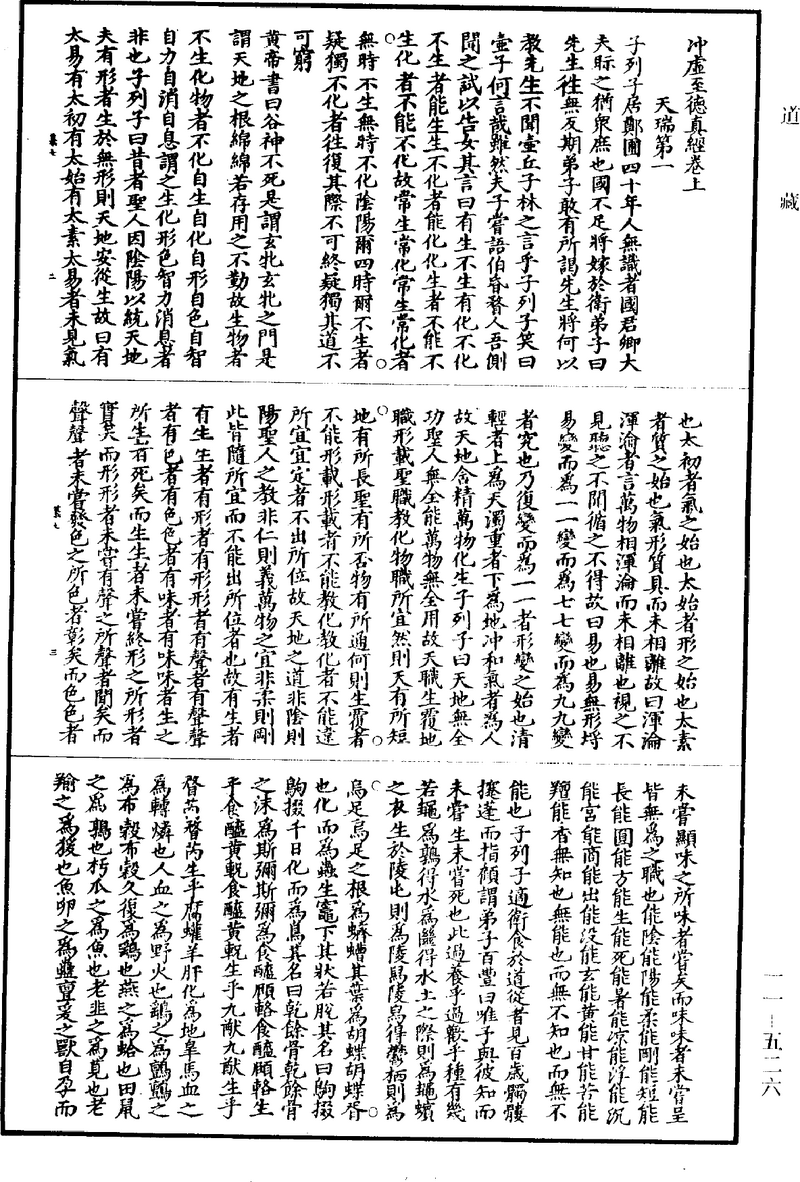 道藏
沖虛至德真經卷上
天瑞第一
子列子居鄭圃四十年人無識者國君卿大
夫眎之猶衆庶也國不足將嫁於衛弟子曰
先生往無反期弟子敢有所謁先生將何以
教先生不聞壷丘子林之言乎子列子笑曰
壷子何言哉雖然夫子嘗語伯昏瞀人吾側
聞之試以告女其言曰有生不生有化不化
不生者能生生不化者能化化生者不能不
生化者不能不化故常生常化常生常化者
無時不生無時不化陰陽爾四時爾不生者
疑獨不化者往復其際不可終疑獨其道不
可窮
黃帝書曰谷神不死是謂玄牝玄牝之門是
謂天地之根綿綿若存用之不勤故生物者
不生化物者不化自生自化自形自色自智
自力自消自息謂之生化形色智力消息者
非也子列子曰昔者聖人因陰陽以統天地
夫有形者生於無形則天地安從生故曰有
太易有太初有太始有太素太易者未見氣
二
也太初者氣之始也太始者形之始也太素
者質之始也氣形質具而未相離故曰渾淪
渾淪者言萬物相渾淪而未相離也視之不
見聽之不聞循之不得故曰易也易無形埒
易變而為一一變而為七七變而為九九變
者究也乃復變而為一一者形變之始也清
輕者上為天濁重者下為地沖和氣者為人
故天地含精萬物化生子列子曰天地無全
功聖人無全能萬物無全用故天職生覆地
職形載聖職教化物職所宜然則天有所短
地有所長聖有所否物有所通何則生覆者
不能形載形載者不能教化教化者不能違
所宜宜定者不出所位故天地之道非陰則
陽聖人之教非仁則義萬物之宜非柔則剛
此皆隨所宜而不能出所位者也故有生者
有生生者有形者有形形者有聲者有聲聲
者有色者有色色者有味者有味味者生之
所生者死矣而生生者未嘗終形之所形者
實矣而形形者未嘗有聲之所聲者聞矣而
聲聲者未嘗發色之所色者彰矣而色色者
三
未嘗顯味之所味者嘗矣而味味者未嘗呈
皆無為之職也能陰能陽能柔能剛能短能
長能圓能方能生能死能暑能涼能浮能沉
能宮能商能出能没能玄能黃能甘能苦能
羶能香無知也無能也而無不知也而無不
能也子列子適衛食於道從者見百歲髑髏
攓蓬而指顧謂弟子百豐曰唯予與彼知而
未嘗生未嘗死也此過養乎過歡乎種有幾
若䵷為鶉得水為㡭得水土之際則為䵷蠙
之衣生於陵屯則為陵舄陵舄得鬱栖則為
烏足烏足之根為蠐螬其葉為胡蝶胡蝶胥
也化而為蟲生竈下其狀若脫其名曰駒掇
駒掇千日化而為鳥其名曰乾餘骨乾餘骨
之沫為斯彌斯彌為食醯頤輅食醯頤輅生
乎食醯黃軦食醯黃軦生乎九猷九猷生乎
瞀芮瞀芮生乎腐蠸羊肝化為地皋馬血之
為轉燐也人血之為野火也鷂之為鸇鸇之
為布穀布穀久復為鷂也燕之為蛤也田鼠
之為鶉也朽瓜之為魚也老韭之為莧也老
羭之為猨也魚卵之為蟲亶爰之獸自孕而
一一—五二六